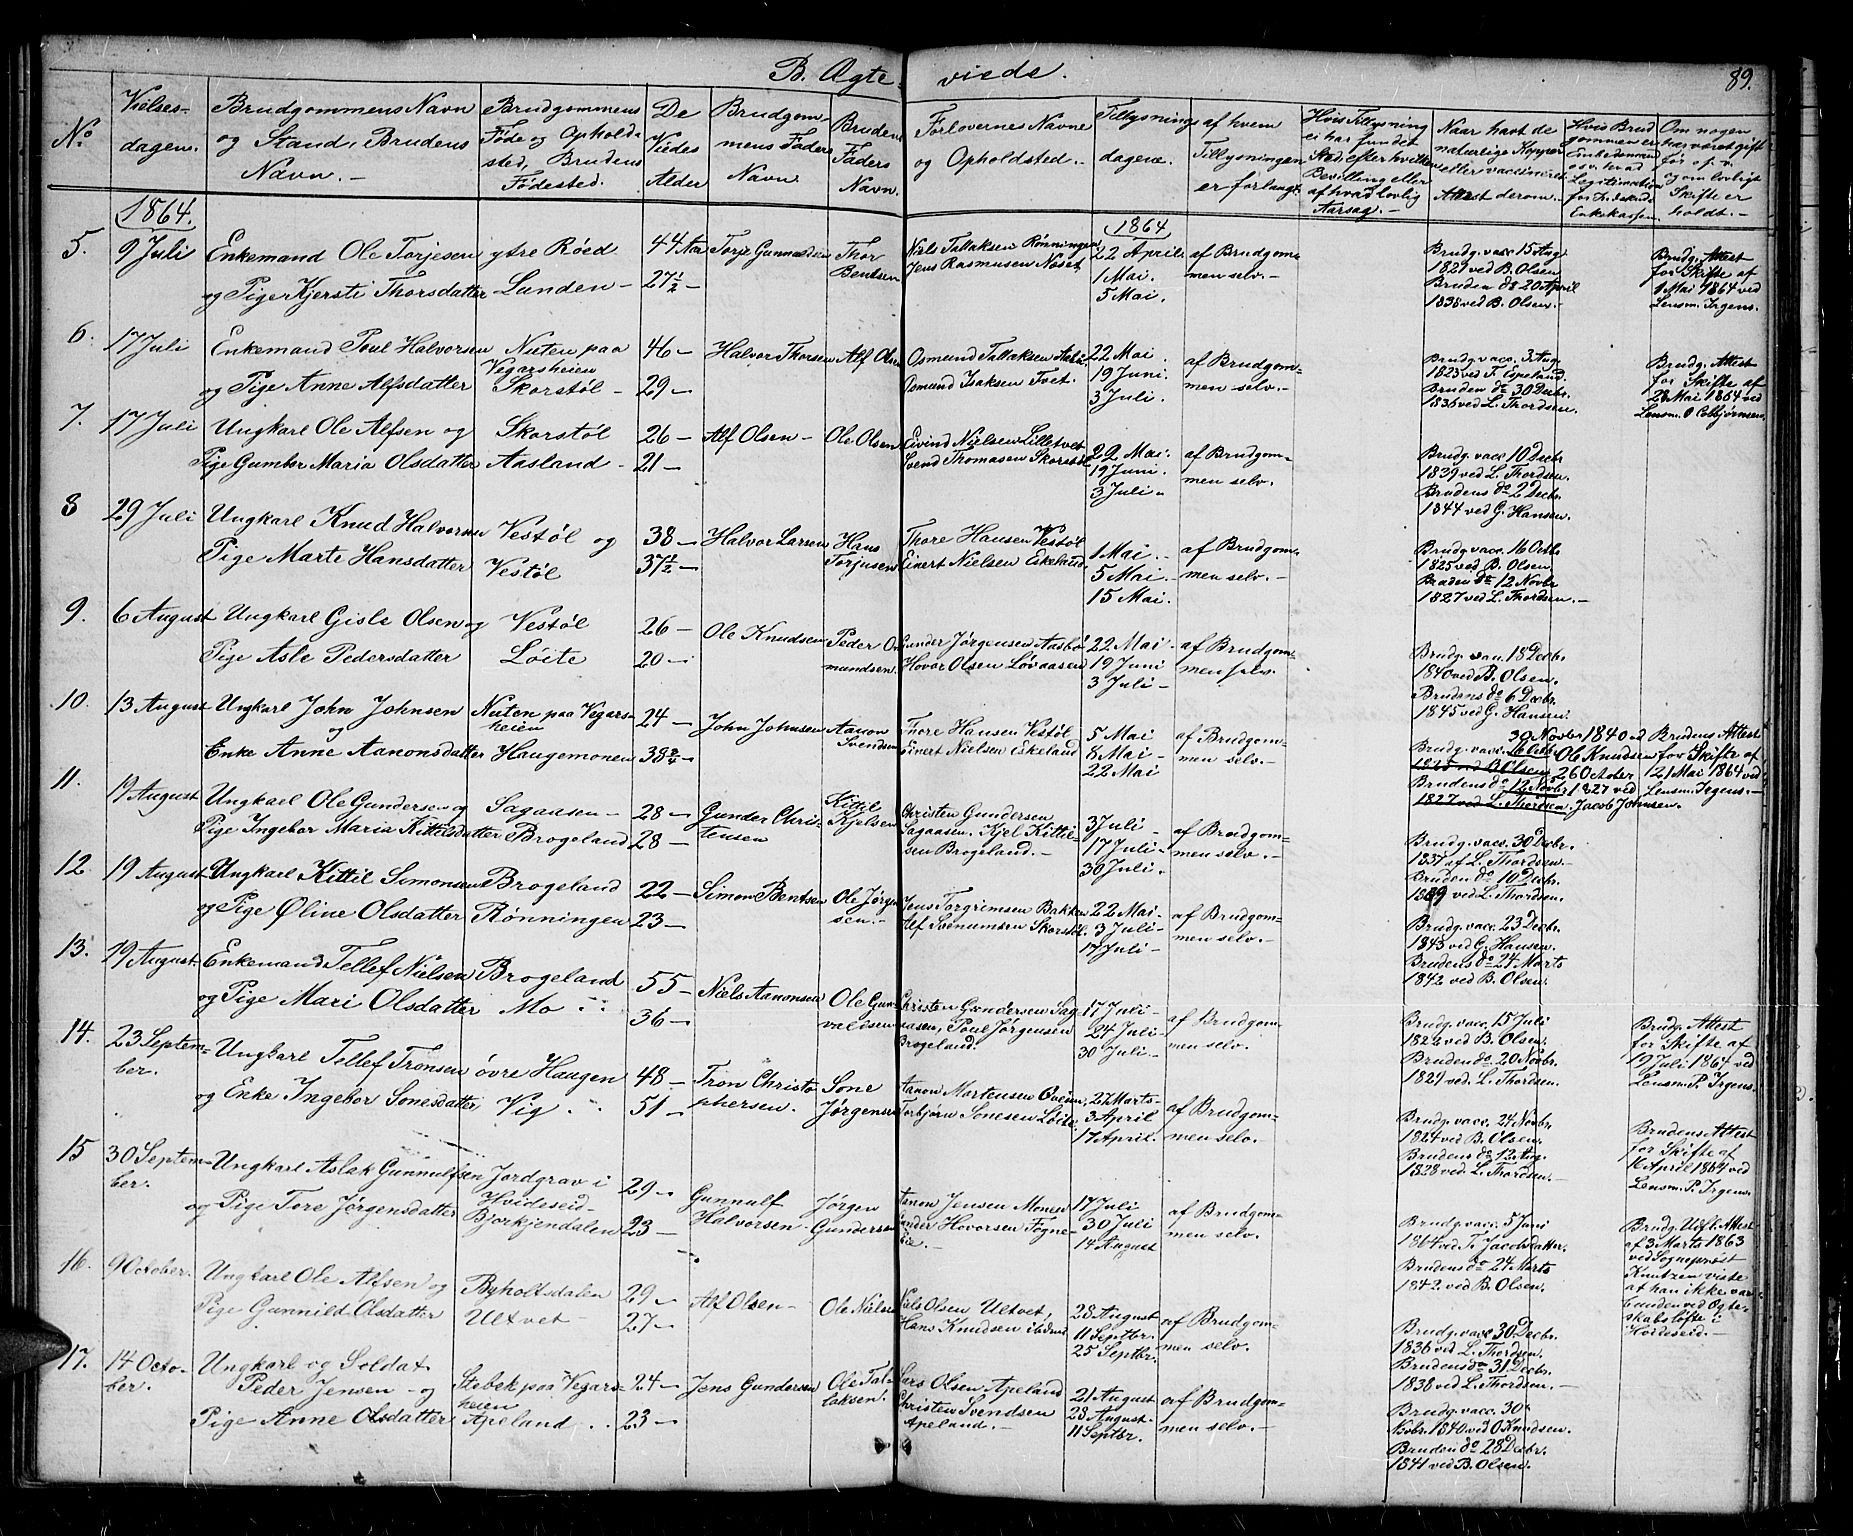 B. Ægte viede. 89.
No.
Vielses-
dagen.
Brudgommens Navn
og Stand, Brudens
Navn. -
Brudgommens
Føde og Opholds
sted, Brudens
Fødested.
De
Viedes
Alder
Brudgom
mens Faders
Navn.
Brudens
Faders
Navn.
Forlovernes Navne
og Opholdsted. -
Tillysnings
dagene.
af hvem
Tillysningen
er forlangt.
Hvis Tillysning
ei har fundet
Sted, efter hvilken
Bevilling eller
af hvad lovlig
Aarsag. -
Naar havt de
naturlige Kopper
eller vaccineret
Attest derom. -
Hvis Brud
gommen er
Om nogen
har været gift
før o. s. v.
og om lovligt
Skifte er
holdt. -
1864.
1864
5. 9 Juli
Enkemand Ole Torjesen
og Pige Kjersti Thorsdatter
ytre Røed
Lunden -
44 Aar
27½ -
Torje Gunnuldsen
Thor
Bentsen
Niels Tallaksen Rønningen
Jens Rasmusen Næset
22 April
1 Mai.
5 Mai.
af Brudgom-
men selv. -
Brudg. vacc 15 Aug
1821 ved B. Olsen
Bruden do 20 April
1838 ved B. Olsen.
Brudg. Attest
for Skifte af
1 Mai 1864 ved
Lensm. Irgens.
6. 17 Juli
Enkemand Poul Halvorsen
og Pige Anne Alfsdatter
Nuten paa
Vegarsheien
Skorstøl -
46 -
29 -
Halvor Thorsen
Alf Olsen
Osmund Tallaksen
Osmund Isaksen Tvet.
22 Mai
19 Juni.
3 Juli.
af Brudgom-
men selv. -
Brudg. vacc. 3 Aug
1823 ved T. Espeland.
Bruden do 30 Decbr.
1836 ved L. Thordsen.
Brudg. Attest
for Skifte af
28 Mai 1864 ved
Lensm. O
7. 17 Juli
Ungkarl Ole Alfsen og
Pige Gunbor Maria Olsdatter
Skorstøl
Aasland -
26 -
21 -
Alf Olsen -
Ole Olsen
Eivind Nielsen Lilletvet
Svend Thomasen Skorstøl
22 Mai.
19 Juni.
3 Juli -
af Brudgom-
men selv. -
Brudg. vacc 10 Decbr
1839 ved L. Thordsen
Brudens do 2 Decbr.
1844 ved G. Hansen.
8 29 Juli
Ungkarl Knud Halvorsen
Pige Marte Hansdatter
Vestøl og
Vestøl
38 -
37½ -
Halvor Larsen
Hans
Torjusen
Thore Hansen Vestøl
Einert Nielsen Eskeland
1 Mai. -
5 Mai.
15 Mai.
af Brudgom-
men selv. -
Brudg. vacc. 16 Octb.
1825 ved B. Olsen
Bruden do 12 Novbr
1827 ved L. Thordsen. -
9. 6 August
Ungkarl Gisle Olsen og
Pige Asle Pedersdatter
Vestøl
Løite
26 -
20 -
Ole Knudsen
Peder Os
mundsen.
Gunder Jørgensen Aasbø
Havor Olsen Løvaasen
22 Mai -
19 Juni
3 Juli -
af Brudgom-
men selv.
Brudg. vac. 18 Decbr
1840 ved B. Olsen.
Brudens do 6 Decbr.
1845 ved G. Hansen.
10. 13 August
Ungkarl John Johnsen
og
Enke Anne Aanonsdatter
Nuten paa Vegars-
heien
Haugemonen
24 -
John Johnsen
Aanon
Svendsen
Thore Hansen Vestøl
Einert Nielsen Eskeland
5 Mai
8 Mai -
22 Mai
af Brudgom-
men selv. -
30 Novbr 1840 ved
Brudg. vacc. 16 Octbr. Ole Knudsen
1825 ved B. Olsen 26 October
Brudens do 12 Novbr 1827 ved
1827 ved L. Thordsen. Jacob Johnsen.
Brudens Attest
for Skifte af
21 Mai 1864 ved
Lensm. Irgens. -
11. 19 August
Ungkarl Ole Gundersen og
Pige Ingebor Maria Kittilsdatter
Sagaasen -
Brogeland
28 -
28 -
Gunder Chris-
tensen
Kittil
Kjelsen
Christen Gundersen
Sagaasen. Kjel Kittil-
sen Brogeland. -
3 Juli -
17 Juli -
30 Juli.
af Brudgom-
men selv. -
Brudg. vacc. 30 Decbr.
1837 af L. Thordsen. -
Bruden do 10 Decbr.
1839 ved L. Thordsen.
12. 19 August
Ungkarl Kittil Simonsen
og Pige Øline Olsdatter
Brogeland
Rønningen
22 -
23 -
Simon Bentsen
Ole Jørgen
sen. -
Jens Torgrimsen Bakken
Alf Svenumsen Skorstøl.
22 Mai -
3 Juli -
17 Juli -
af Brudgom-
men selv. -
Brudg. vacc. 23 Decbr.
1843 ved G. Hansen.
Brudens do 24 Marts
1842 ved B. Olsen.
13. 19 August.
Enkemand Tellef Nielsen
og Pige Mari Olsdatter
Brogeland
Mo
55 -
36 -
Niels Aanonsen
Ole Gun-
valdsen
Christen Gundersen Sag-
aasen, Poul Jørgensen
Brogeland.
17 Juli -
24 Juli -
30 Juli. -
af Brudgom-
men selv. -
Brudg. vacc. 15 Juli
1822 ved B. Olsen.
Bruden do 20 Novbr.
1829 ved. L. Thordsen.
Brudg. Attest
for Skifte af
19 Juli 1864 ved
Lensm. P. Irgens.
14. 23 Septem-
ber.
Ungkarl Tellef Tronsen
og Enke Ingebor Sonesdatter
øvre Haugen
Vig
48 -
51 -
Tron Christo
phersen.
Sone
Jørgensen
Aanon Mortensen
Torbjørn Sonesen Løite
27 Marts -
3 April
17 April.
af Brudgom-
men selv. -
Brudg. vacc. 24 Novbr.
1824 ved B. Olsen.
Brudens do 12 Aug.
1828 ved L. Thordsen. -
Brudens Attest
for Skifte af
16 April 1864 ved
Lensm. P. Irgens.
15 30 Septem-
ber.
Ungkarl Aslak Gunnulfsen
og Pige Tore Jørgensdatter
Jordgrav i
Hvideseid -
Bjorkjendalen
29 -
23 -
Gunnulf
Halvorsen
Jørgen
Gundersen
Aanon Jensen Monen
Gunder Havorsen Fogne-
lie. -
17 Juli
30 Juli
14 August
af Brudgom-
men selv.
Brudg. vacc. 5 Juni
1864 ved T. Jacobsdatter.
Brudens do 24 Marts
1842 ved B. Olsen.
Brudg. Udfl. Attest
af 3 Marts 1863
ved Sogneprest
Knutzen viste
at han ikke var
bunden ved Ægte-
skabsløfte i
Hvideseid. -
16. 9 October.
Ungkarl Ole Alfsen og
Pige Gunnild Olsdatter
Byholtsdalen
Ultvet -
29 -
27 -
Alf Olsen -
Ole Nielsen
Niels Olsen Ultvet,
Hans Knudsen ibidem
28 August
11 Septbr.
25 Septbr.
af Brudgom-
men selv.
Brudg. vacc. 30 Decbr.
1836 ved L. Thordsen.
Brudens do 31 Decbr.
1838 ved L. Thordsen. -
17. 14 Octo-
ber.
Ungkarl og Soldat
Peder Jensen - og
Pige Anne Olsdatter
Stebek paa Vegars-
heien
Apeland
24 -
23 -
Jens Gundersen
Ole Tal-
laksen.
Lars Olsen Apeland
Christen Svendsen
Apeland. -
21 August
28 August -
11 Septbr.
af Brudgom-
men selv. -
Brudg. vacc. 30
Novbr. 1840 ved O Knudsen
Bruden do 28 Decbr.
1841 ved B. Olsen.